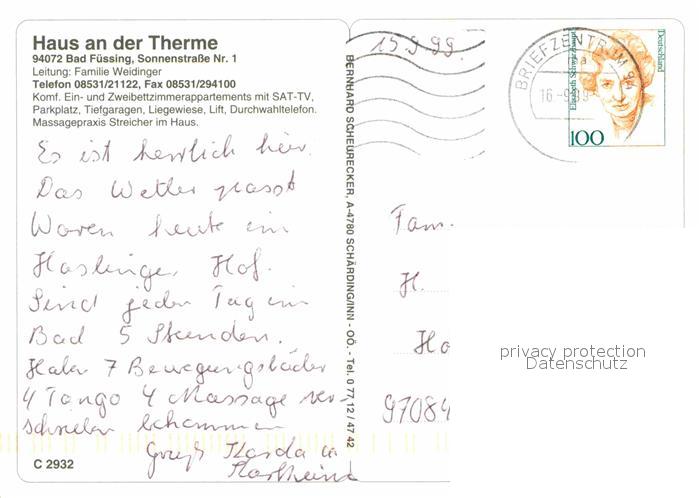 Haus an der Therme
94072 Bad Füssing, Sonnenstraße Nr. 1
Leitung: Familie Weidinger
Telefon 08531/21122, Fax 08531/294100
Komf. Ein- und Zweibettzimmerappartements mit SAT-TV,
Parkplatz, Tiefgaragen, Liegewiese, Lift, Durchwahltelefon.
Massagepraxis Streicher im Haus.
Es ist herrlich hier.
Das Wetter passt
Waren heute im
Haslinger Hof.
Sind jeden Tag im
Bad 5 Stunden.
Haben 7 Bewegungsbäder
4 Fango 4 Massage ver
schrieben bekommen
C 2932
BERNHARD SCHEURECKER, A-4780 SCHÄRDING/INN - OÖ. - Tel. 0 77 12 / 47 42
15.9.99.
BRIEFZENTRUM 94
16.-9.99
Deutschland
100
Fam.
H.
Ho
97084
privacy protection
Datenschutz